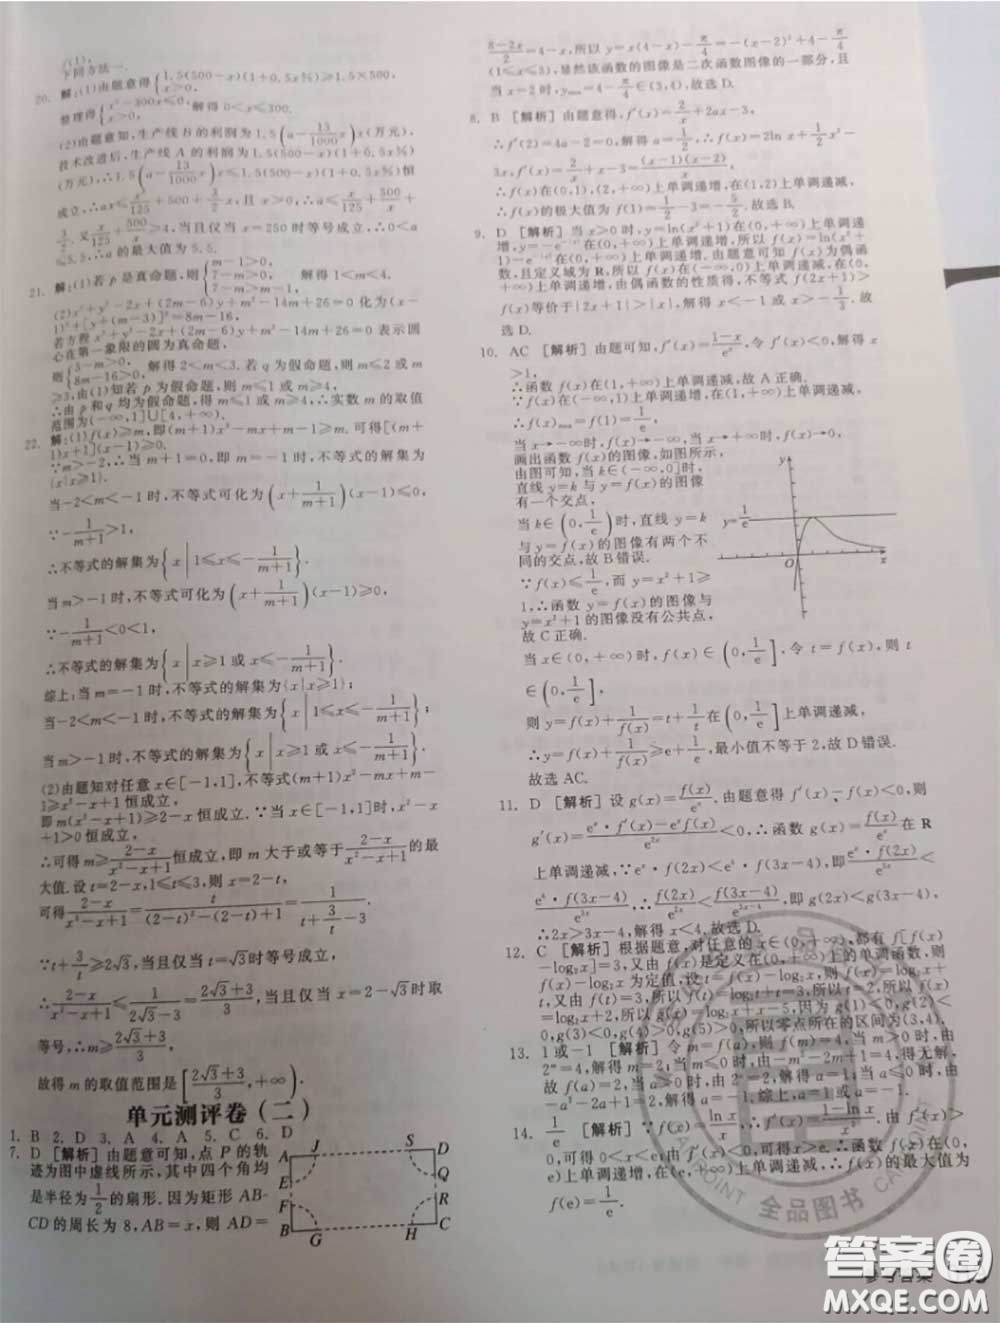 f(1),
下同方法一.
20. 解:(1)由题意得{1.5(500-x)(1+0.5x%)≥1.5×500,
x>0,
整理得{x²-300x≤0, 解得 0<x≤300.
x>0,
(2)由题意知,生产线 B 的利润为 1.5(a-13/1000 x)x(万元),
技术改进后,生产线 A 的利润为 1.5(500-x)(1+0.5x%)
(万元),∴1.5(a-13/1000 x)x≤1.5(500-x)(1+0.5x%)恒
成立,∴ax≤x²/125+500+3/2 x,且 x>0,∴a≤x/125+500/x+
3/2,又x/125+500/x≥4,当且仅当 x=250 时等号成立,∴0<a
≤5.5,∴a 的最大值为 5.5.
21. 解:(1)若 p 是真命题,则{m-1>0, 7-m>0, 7-m>m-1, 解得 1<m<4.
(2)x²+y²-2x+(2m-6)y+m²-14m+26=0 化为(x-
1)²+[y+(m-3)]²=8m-16,
若方程 x²+y²-2x+(2m-6)y+m²-14m+26=0 表示圆
心在第一象限的圆为真命题,
则{3-m>0, 8m-16>0, 解得 2<m<3.若 q 为假命题,则 m≤2 或 m
≥3,由(1)知若 p 为假命题,则 m≤1 或 m≥4.
∴由 p 和 q 均为假命题,得 m≤1 或 m≥4,∴实数 m 的取值
范围为(-∞,1]∪[4,+∞).
22. 解:(1)f(x)≥m,即(m+1)x²-mx+m-1≥m.可得[(m+
1)x+1](x-1)≥0.
∵m>-2,∴当 m+1=0,即 m=-1 时,不等式的解集为
{x|x≥1}.
当-2<m<-1 时,不等式可化为(x+1/(m+1))(x-1)≤0,
∵-1/(m+1)>1,
∴不等式的解集为{x|1≤x≤-1/(m+1)}.
当 m>-1 时,不等式可化为(x+1/(m+1))(x-1)≥0,
∵-1/(m+1)<0<1,
∴不等式的解集为{x|x≥1 或 x≤-1/(m+1)}.
综上:当 m=-1 时,不等式的解集为{x|x≥1};
当-2<m<-1 时,不等式的解集为{x|1≤x≤-1/(m+1)};
当 m>-1 时,不等式的解集为{x|x≥1 或 x≤-1/(m+1)}.
(2)由题知对任意 x∈[-1,1],不等式(m+1)x²-mx+m-
1≥x²-x+1 恒成立,
即 m(x²-x+1)≥2-x 恒成立.∵当 x∈[-1,1]时,x²-x
+1>0 恒成立.
∴可得 m≥(2-x)/(x²-x+1)恒成立,即 m 大于或等于(2-x)/(x²-x+1)的最
大值.设 t=2-x,1≤t≤3,则 x=2-t.
可得(2-x)/(x²-x+1)=t/((2-t)²-(2-t)+1)=1/(t+3/t-3),
∵t+3/t≥2√3,当且仅当 t=√3时,等号成立,
∴(2-x)/(x²-x+1)≤1/(2√3-3)=(2√3+3)/3,当且仅当 x=2-√3时取
等号,∴m≥(2√3+3)/3,
故得 m 的取值范围是[(2√3+3)/3,+∞).
单元测评卷(二)
1. B 2. D 3. A 4. A 5. C 6. D
7. D [解析] 由题意可知,点 P 的轨
迹为图中虚线所示,其中四个角均
是半径为1/2的扇形.因为矩形 AB-
CD 的周长为 8,AB=x,则 AD=
J S
A D
E Q
F R
B G H C
(8-2x)/2=4-x,所以 y=x(4-x)-π/4=-(x-2)²+4-π/4
(1≤x≤3),显然该函数的图像是二次函数图像的一部分,且
当 x=2 时,ymax=4-π/4∈(3,4),故选 D.
8. B [解析] 由题意得,f'(x)=2/x+2ax-3,
∴f'(2)=4a-2=0,解得 a=1/2,∴f(x)=2ln x+1/2x²-
3x,f'(x)=2/x+x-3=(x-1)(x-2)/x,
∴f(x)在(0,1),(2,+∞)上单调递增,在(1,2)上单调递减,
∴f(x)的极大值为 f(1)=1/2-3=-5/2.故选 B.
9. D [解析] 当 x>0 时,y=ln(x²+1)在(0,+∞)上单调递
单调递增,所以 f(x)=ln(x²+
1)-e^(-|x|)在(0,+∞)上单调递增.由题知 f(x)为偶函数,
且定义域为 R,所以 f(x)在(-∞,0)上单调递减,在(0,
+∞)上单调递增,由偶函数的性质得,不等式 f(2x+1)>
f(x)等价于|2x+1|>|x|,解得 x<-1 或 x>-1/3,故
选 D.
10. AC [解析] 由题可知,f'(x)=(1-x)/e^x,令 f'(x)<0,解得 x
>1,
∴函数 f(x)在(1,+∞)上单调递减,故 A 正确.
∴f(x)max=f(1)=1/e,
当 x→-∞时,f(x)→-∞,当 x→+∞时,f(x)→0,
画出函数 f(x)的图像,如图所示,
由图可知,当 k∈(-∞,0]时,
直线 y=k 与 y=f(x)的图像
有一个交点,
当 k∈(0,1/e)时,直线 y=k
与 y=f(x)的图像有两个不
同的交点,故 B 错误.
∵f(x)≤1/e,而 y=x²+1≥
1,∴函数 y=f(x)的图像与
y=x²+1 的图像没有公共点,
故 C 正确.
y
y=1/e
O x
当 x∈(0,+∞)时,f(x)∈(0,1/e],令 t=f(x),则 t
∈(0,1/e],
则 y=f(x)+1/f(x)=t+1/t在(0,1/e]上单调递减,
∴y=f(x)+1/f(x)≥e+1/e,最小值不等于 2,故 D 错误.
故选 AC.
11. D [解析] 设 g(x)=f(x)/e^x.由题意得 f'(x)-f(x)<0,则
g'(x)=(e^x·f'(x)-e^x f(x))/e^2x<0,∴函数 g(x)=f(x)/e^x在 R
上单调递减,∵e^x·f(2x)<e^4·f(3x-4),即e^x·f(2x)/e^3x<
e^4·f(3x-4)/e^3x,∴f(2x)/e^2x<f(3x-4)/e^(3x-4),即 g(2x)<g(3x-4),
∴2x>3x-4,解得 x<4.故选 D.
12. C [解析] 根据题意,对任意的 x∈(0,+∞),都有 f[f(x)
-log₂x]=3,又由 f(x)是定义在(0,+∞)上的单调函数,则
f(x)-log₂x 为定值,设 t=f(x)-log₂x,则 f(x)=log₂x+
t,又由 f(t)=3,即 log₂t+t=3,所以 t=2,所以 f(x)=log₂x
+2,所以 g(x)=log₂x+x-5,因为 g(1)<0,g(2)<
0,g(3)<0,g(4)>0,g(5)>0,所以零点所在的区间为(3,4).
13. 1 或-1 [解析] 令 m=f(a),则 f(m)=4,当 m>0 时,由
2^m=4,解得 m=2;当 m≤0 时,
故 f(a)=2,当 a>0 时,
a=-1.综上,a=1 或 a=-1.
14. 1/e [解析] ∵f(x)=ln x/x,∴f'(x)=(1-ln x)/x²,令 f'(x)>
0,可得 0<x<e;令 f'(x)<0,可得 x>e.∴函数 f(x)在(0,
e)上单调递增,在(e,+∞)上单调递减,∴f(x)的最大值为
f(e)=1/e.
POINT
全品图书
参考答案
答案圈
MXQE.COM